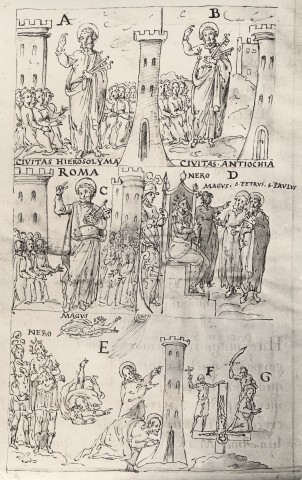 A
B
CIVITAS HIEROSOLYMA
CIVITAS·ANTIOCHIA
ROMA
C
NERO
D
MAGVS, S·PETRVS, S·PAVLVS
MAGVS
NERO
E
F
G